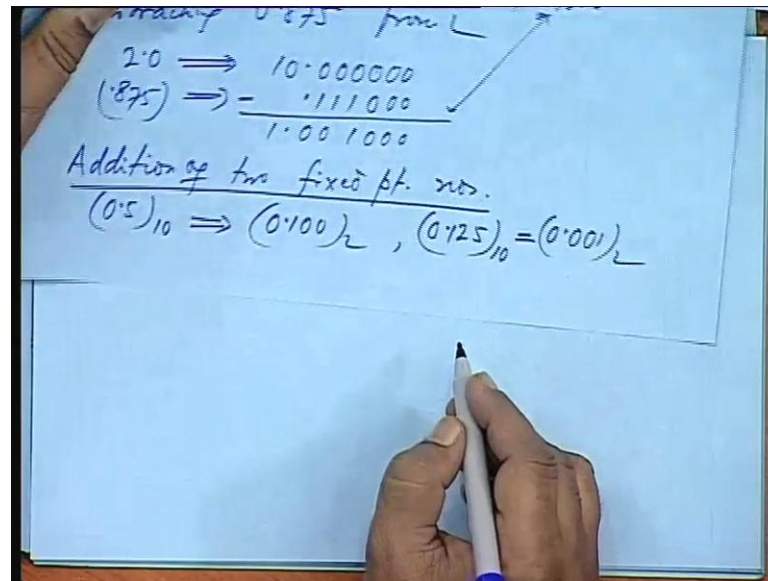 0.875 from 2
2.0 ⟹ 10.000000
(.875) ⟹ - .111000
1.001000
Addition of two fixed pt. nos.
(0.5)₁₀ ⟹ (0.100)₂ , (0.125)₁₀ = (0.001)₂